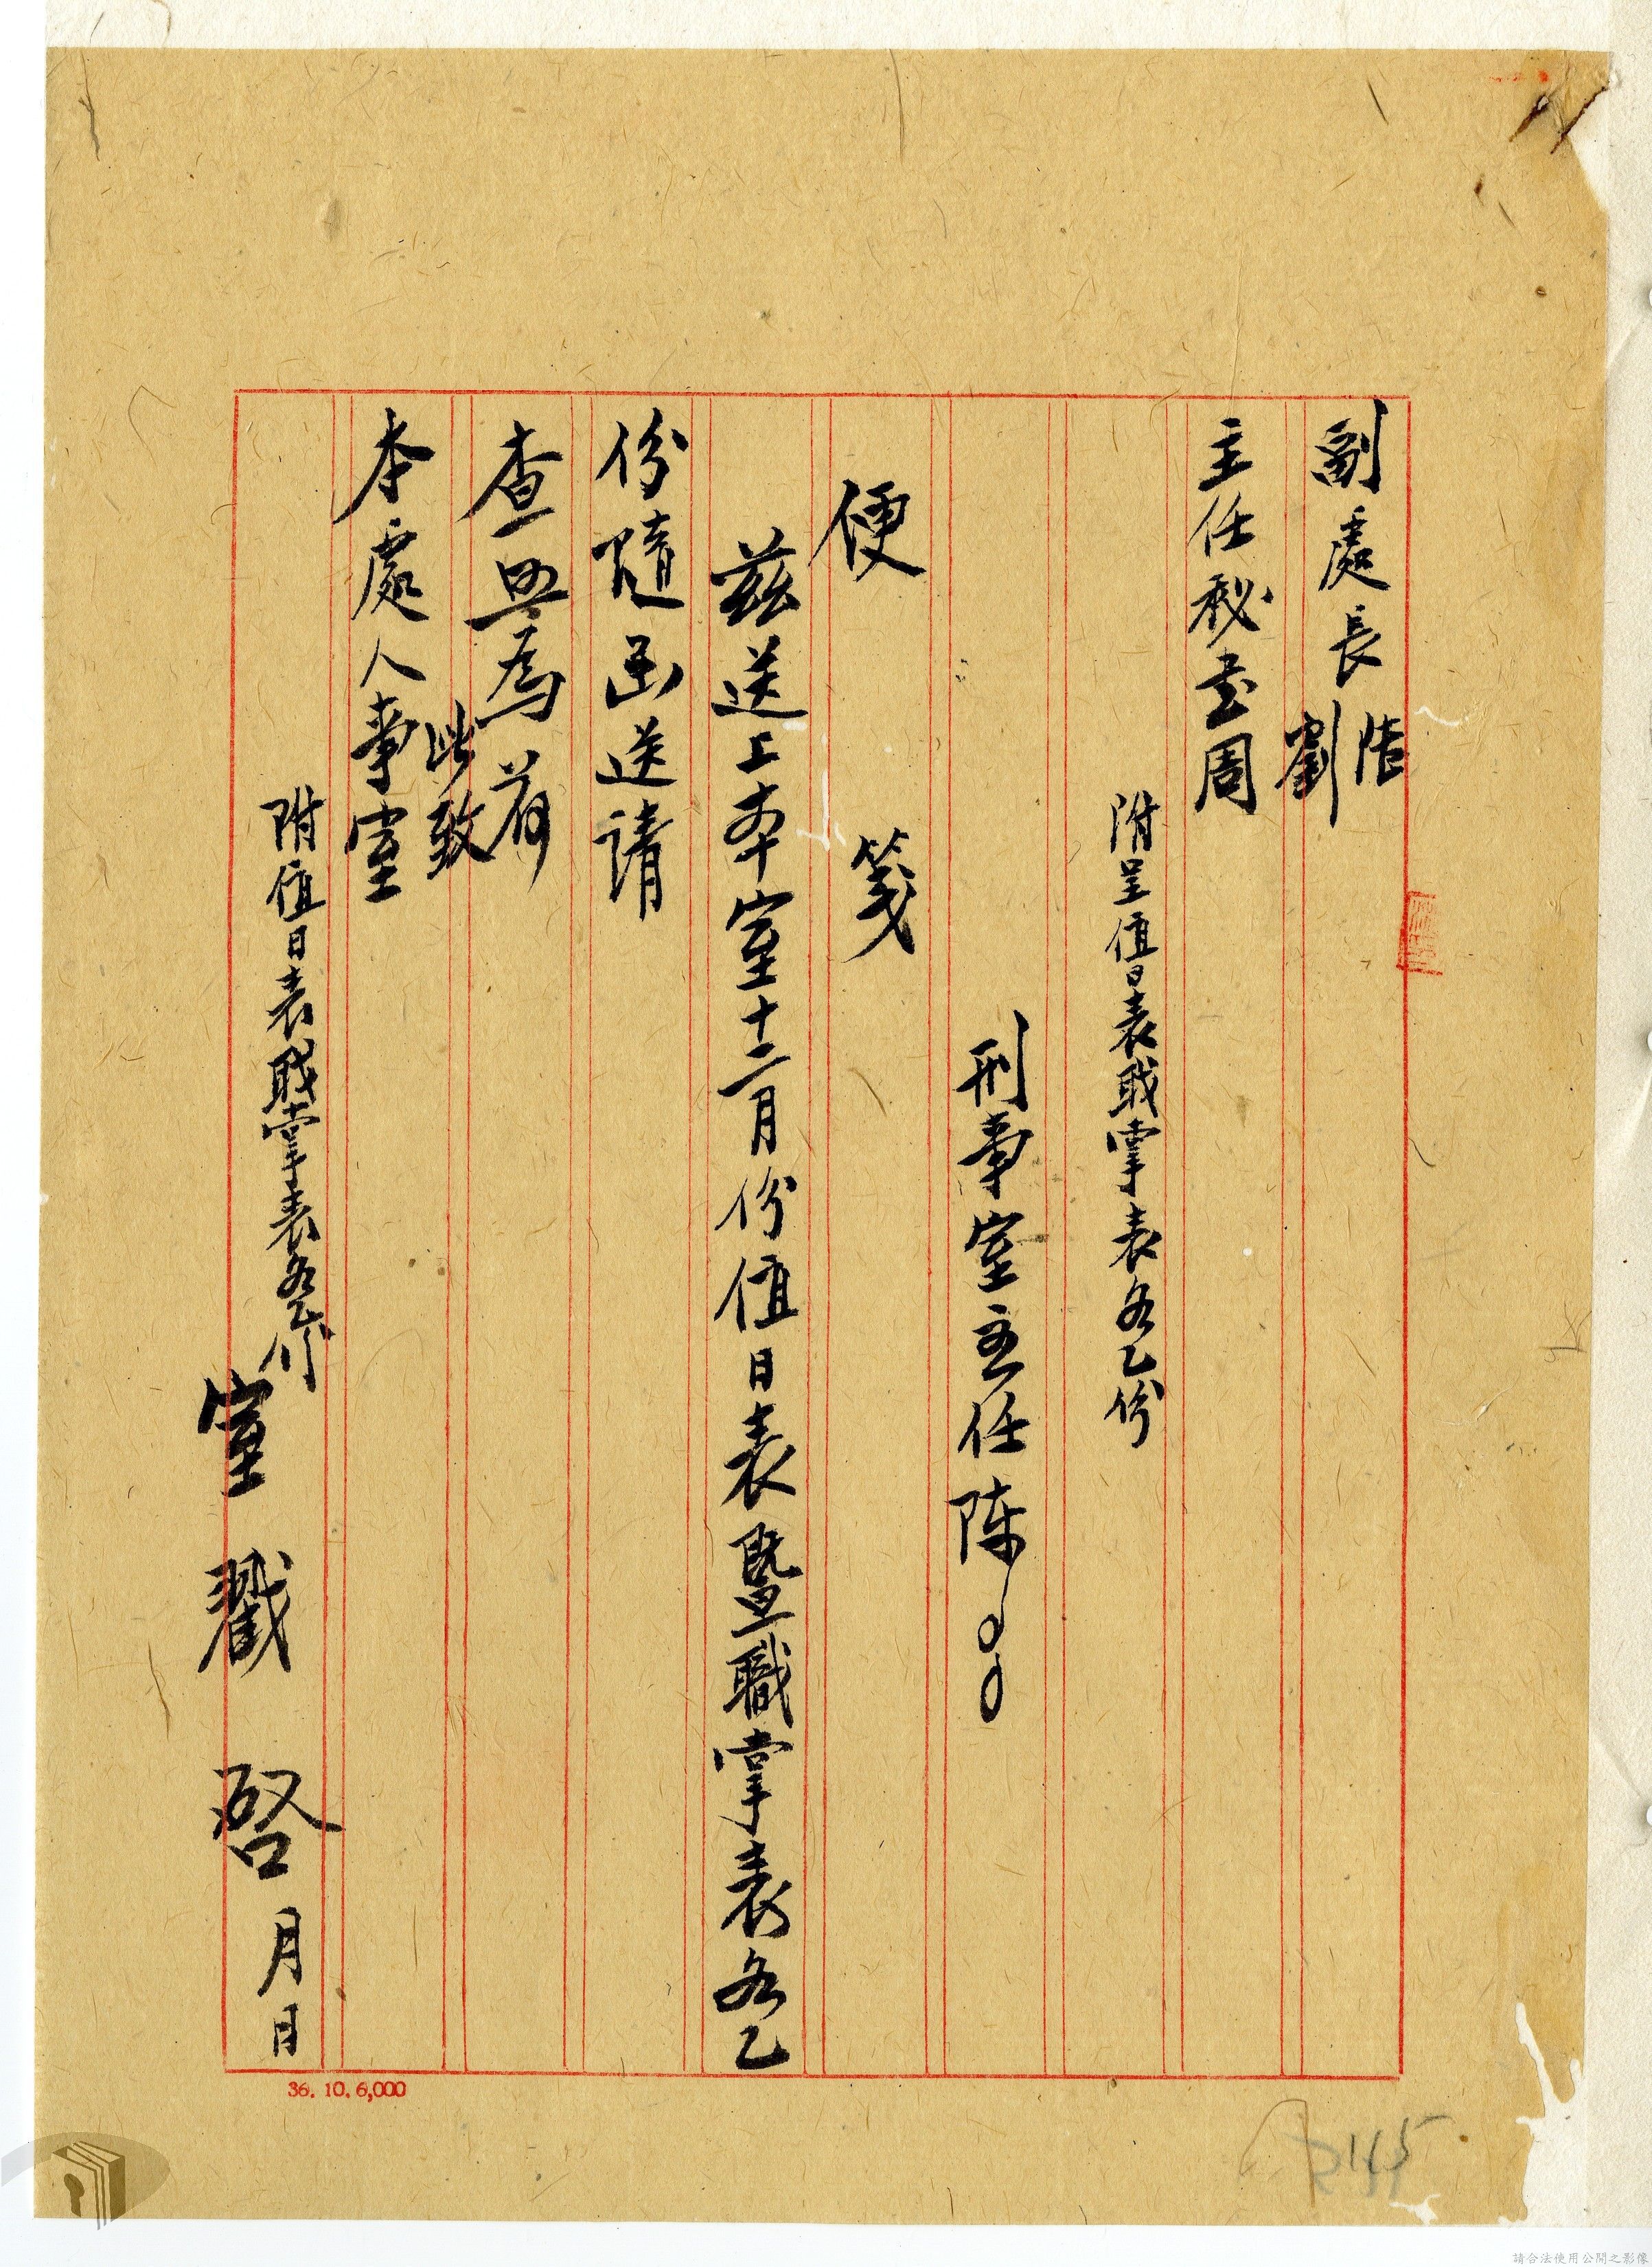 副處長 張
劉
主任秘書周
附呈值日表職掌表各乙份
刑事室主任陳
便 箋
茲送上本室十二月份值日表暨職掌表各乙
份隨函送請
查照為荷
此致
本處人事室
附值日表職掌表各乙份
室戳 啓 月 日
36. 10. 6,000
請合法使用公開之影像